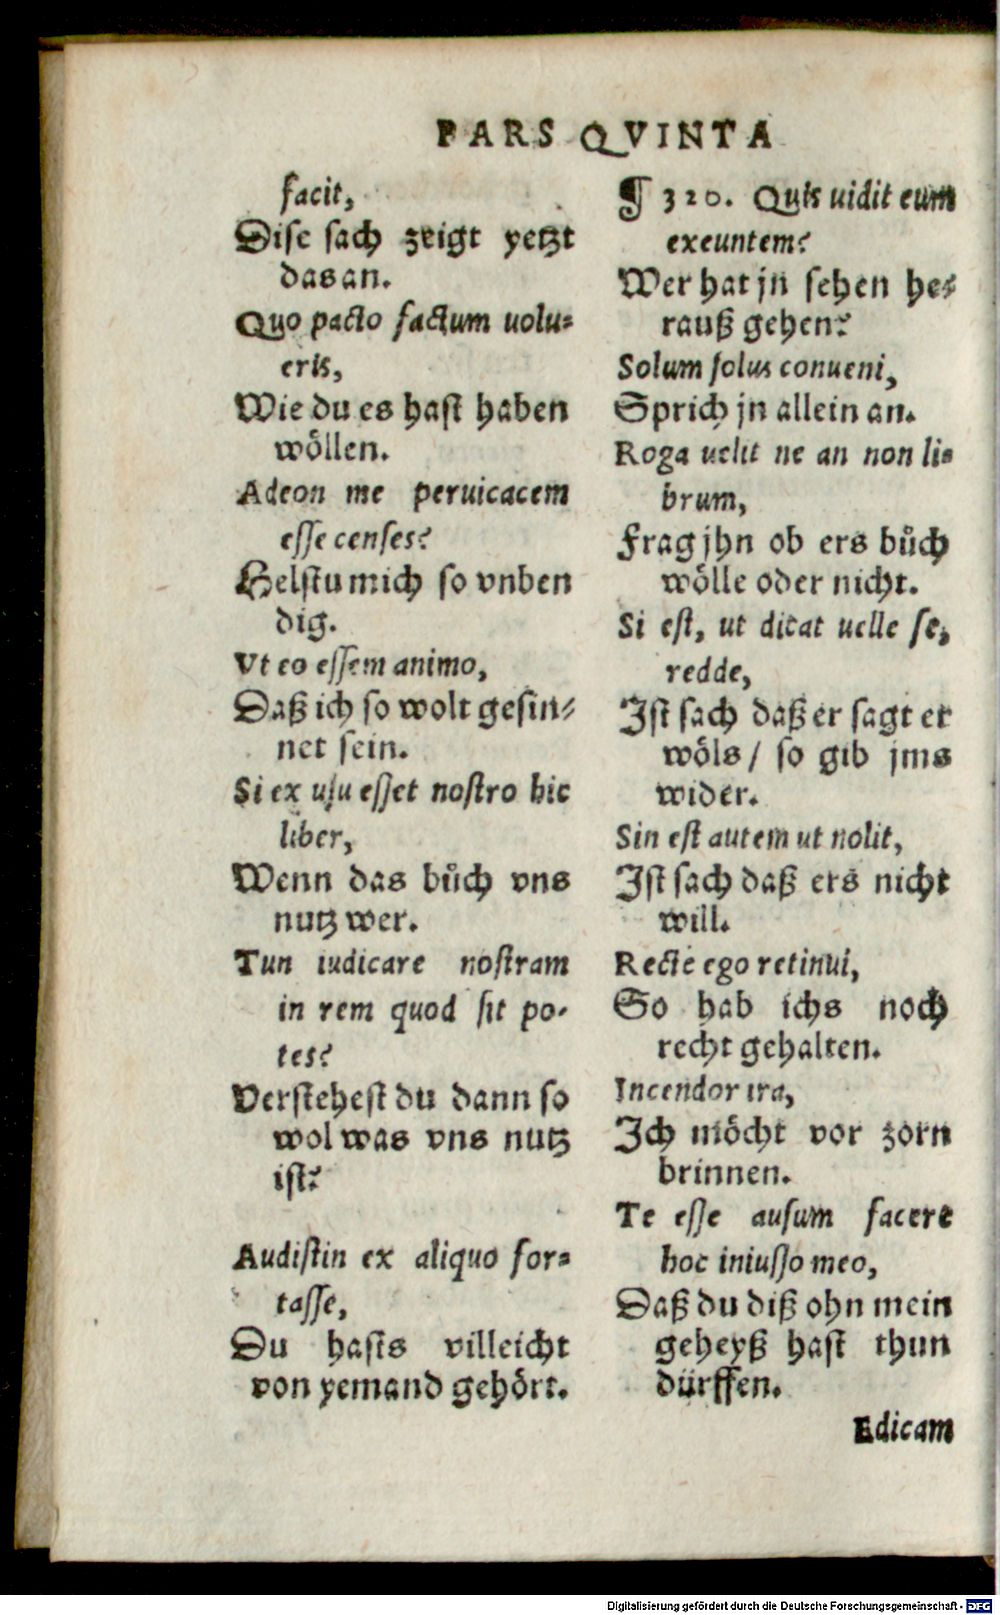 PARS QVINTA
facit,
Dise sach zeigt yetzt
das an.
Quo pacto factum uolu-
eris,
Wie du es hast haben
wöllen.
Adeon me peruicacem
esse censes?
Helstu mich so vnben
dig.
Vt eo essem animo,
Daß ich so wolt gesin-
net sein.
Si ex usu esset nostro hic
liber,
Wenn das bůch vns
nutz wer.
Tun iudicare nostram
in rem quod sit po-
tes?
Verstehest du dann so
wol was vns nutz
ist?
Audistin ex aliquo for-
tasse,
Du hasts villeicht
von yemand gehört.
¶ 320. Quis uidit eum
exeuntem?
Wer hat jn sehen he-
rauß gehen?
Solum solus conueni,
Sprich jn allein an.
Roga uelit ne an non li-
brum,
Frag jhn ob ers bůch
wölle oder nicht.
Si est, ut dicat uelle se,
redde,
Ist sach daß er sagt er
wöls / so gib jms
wider.
Sin est autem ut nolit,
Ist sach daß ers nicht
will.
Recte ego retinui,
So hab ichs noch
recht gehalten.
Incendor ira,
Ich möcht vor zorn
brinnen.
Te esse ausum facere
hoc iniusso meo,
Daß du diß ohn mein
geheyß hast thun
dürffen.
Edicam
Digitalisierung gefördert durch die Deutsche Forschungsgemeinschaft - DFG